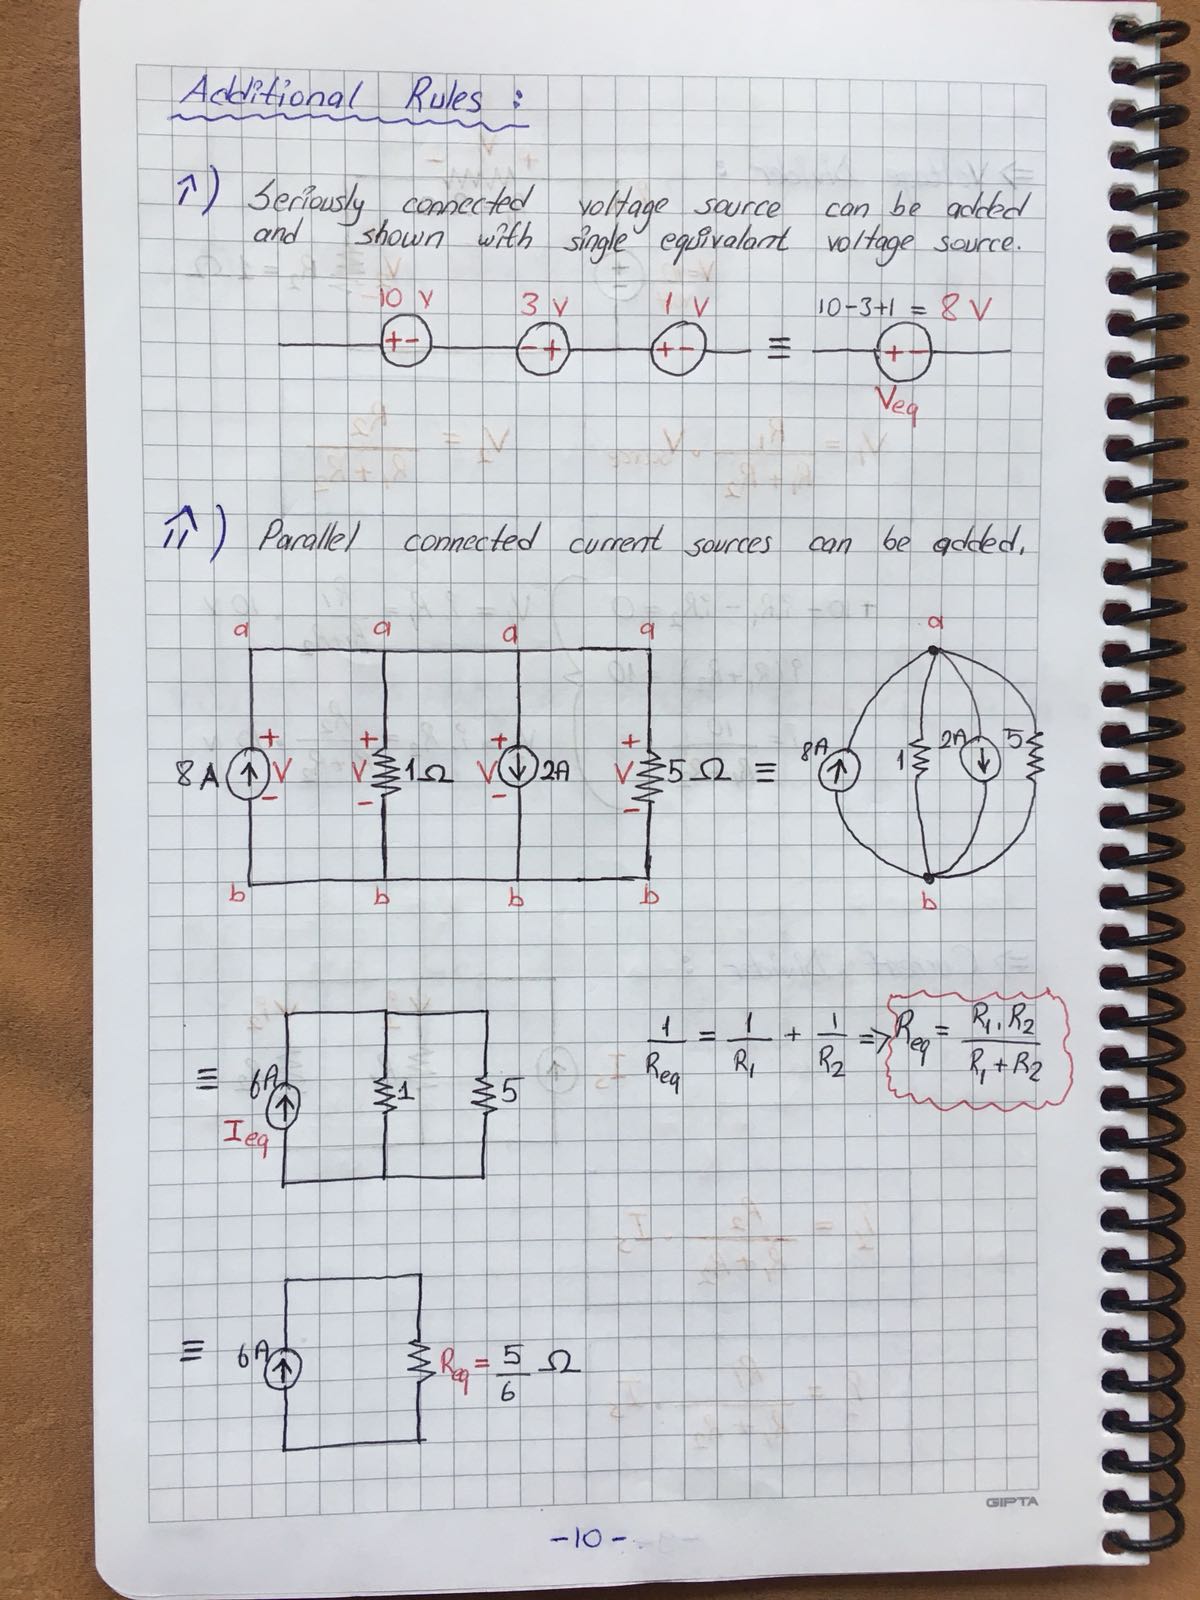 Additional Rules :
i) Seriously connected voltage source can be added
and shown with single equivalant voltage source.
10 V 3 V 1 V 10-3+1 = 8 V
+- -+ +- ≡ +-
Veq
ii) Parallel connected current sources can be added.
a a a a a
8A + V - + V - 1Ω + V - 2A + V - 5Ω ≡ 8A 1 2A 5
b b b b b
≡ 6A Ieq 1 5
1/Req = 1/R1 + 1/R2 => Req = R1.R2/R1+R2
≡ 6A Req = 5/6 Ω
GIPTA
-10-